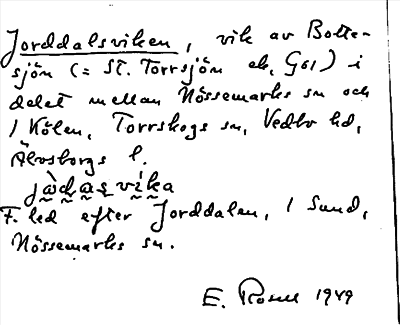 Jorddalsviken, vik av Botten-
sjön (= St. Torrsjön ek, G61) i
delat mellan Nössemarks sn och
/ Kölen, Torrskogs sn, Vedbo hd,
Älvsborgs l.
jàdasvíka
F. led efter Jorddalen, / Sund,
Nössemarks sn.
E. 1949